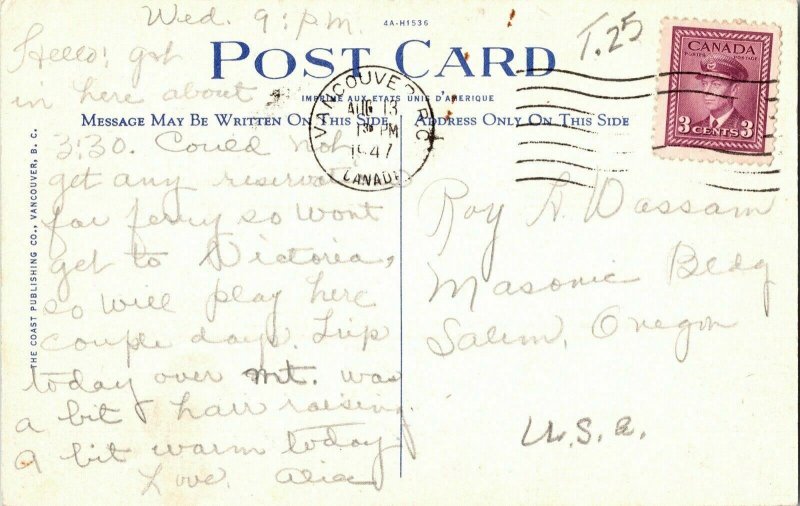 Wed. 9:pm.
4A-H1536
T.25
POST CARD
CANADA
POSTES POSTAGE
3 CENTS 3
IMPRIMÉ AUX ETATS UNIS D'AMERIQUE
VANCOUVER B.C.
AUG 13
PM
1947
CANADA
MESSAGE MAY BE WRITTEN ON THIS SIDE
ADDRESS ONLY ON THIS SIDE
THE COAST PUBLISHING CO., VANCOUVER, B. C.
Hello! got
in here about
3:30. Could not
get any reservat
for ferry so wont
get to Victoria,
so will play here
couple days. Trip
today over mt. was
a bit hair raising
A bit warm today.
Love. Alice
Roy A. Wassam
Masonic Bldg
Salem, Oregon
U.S.A.